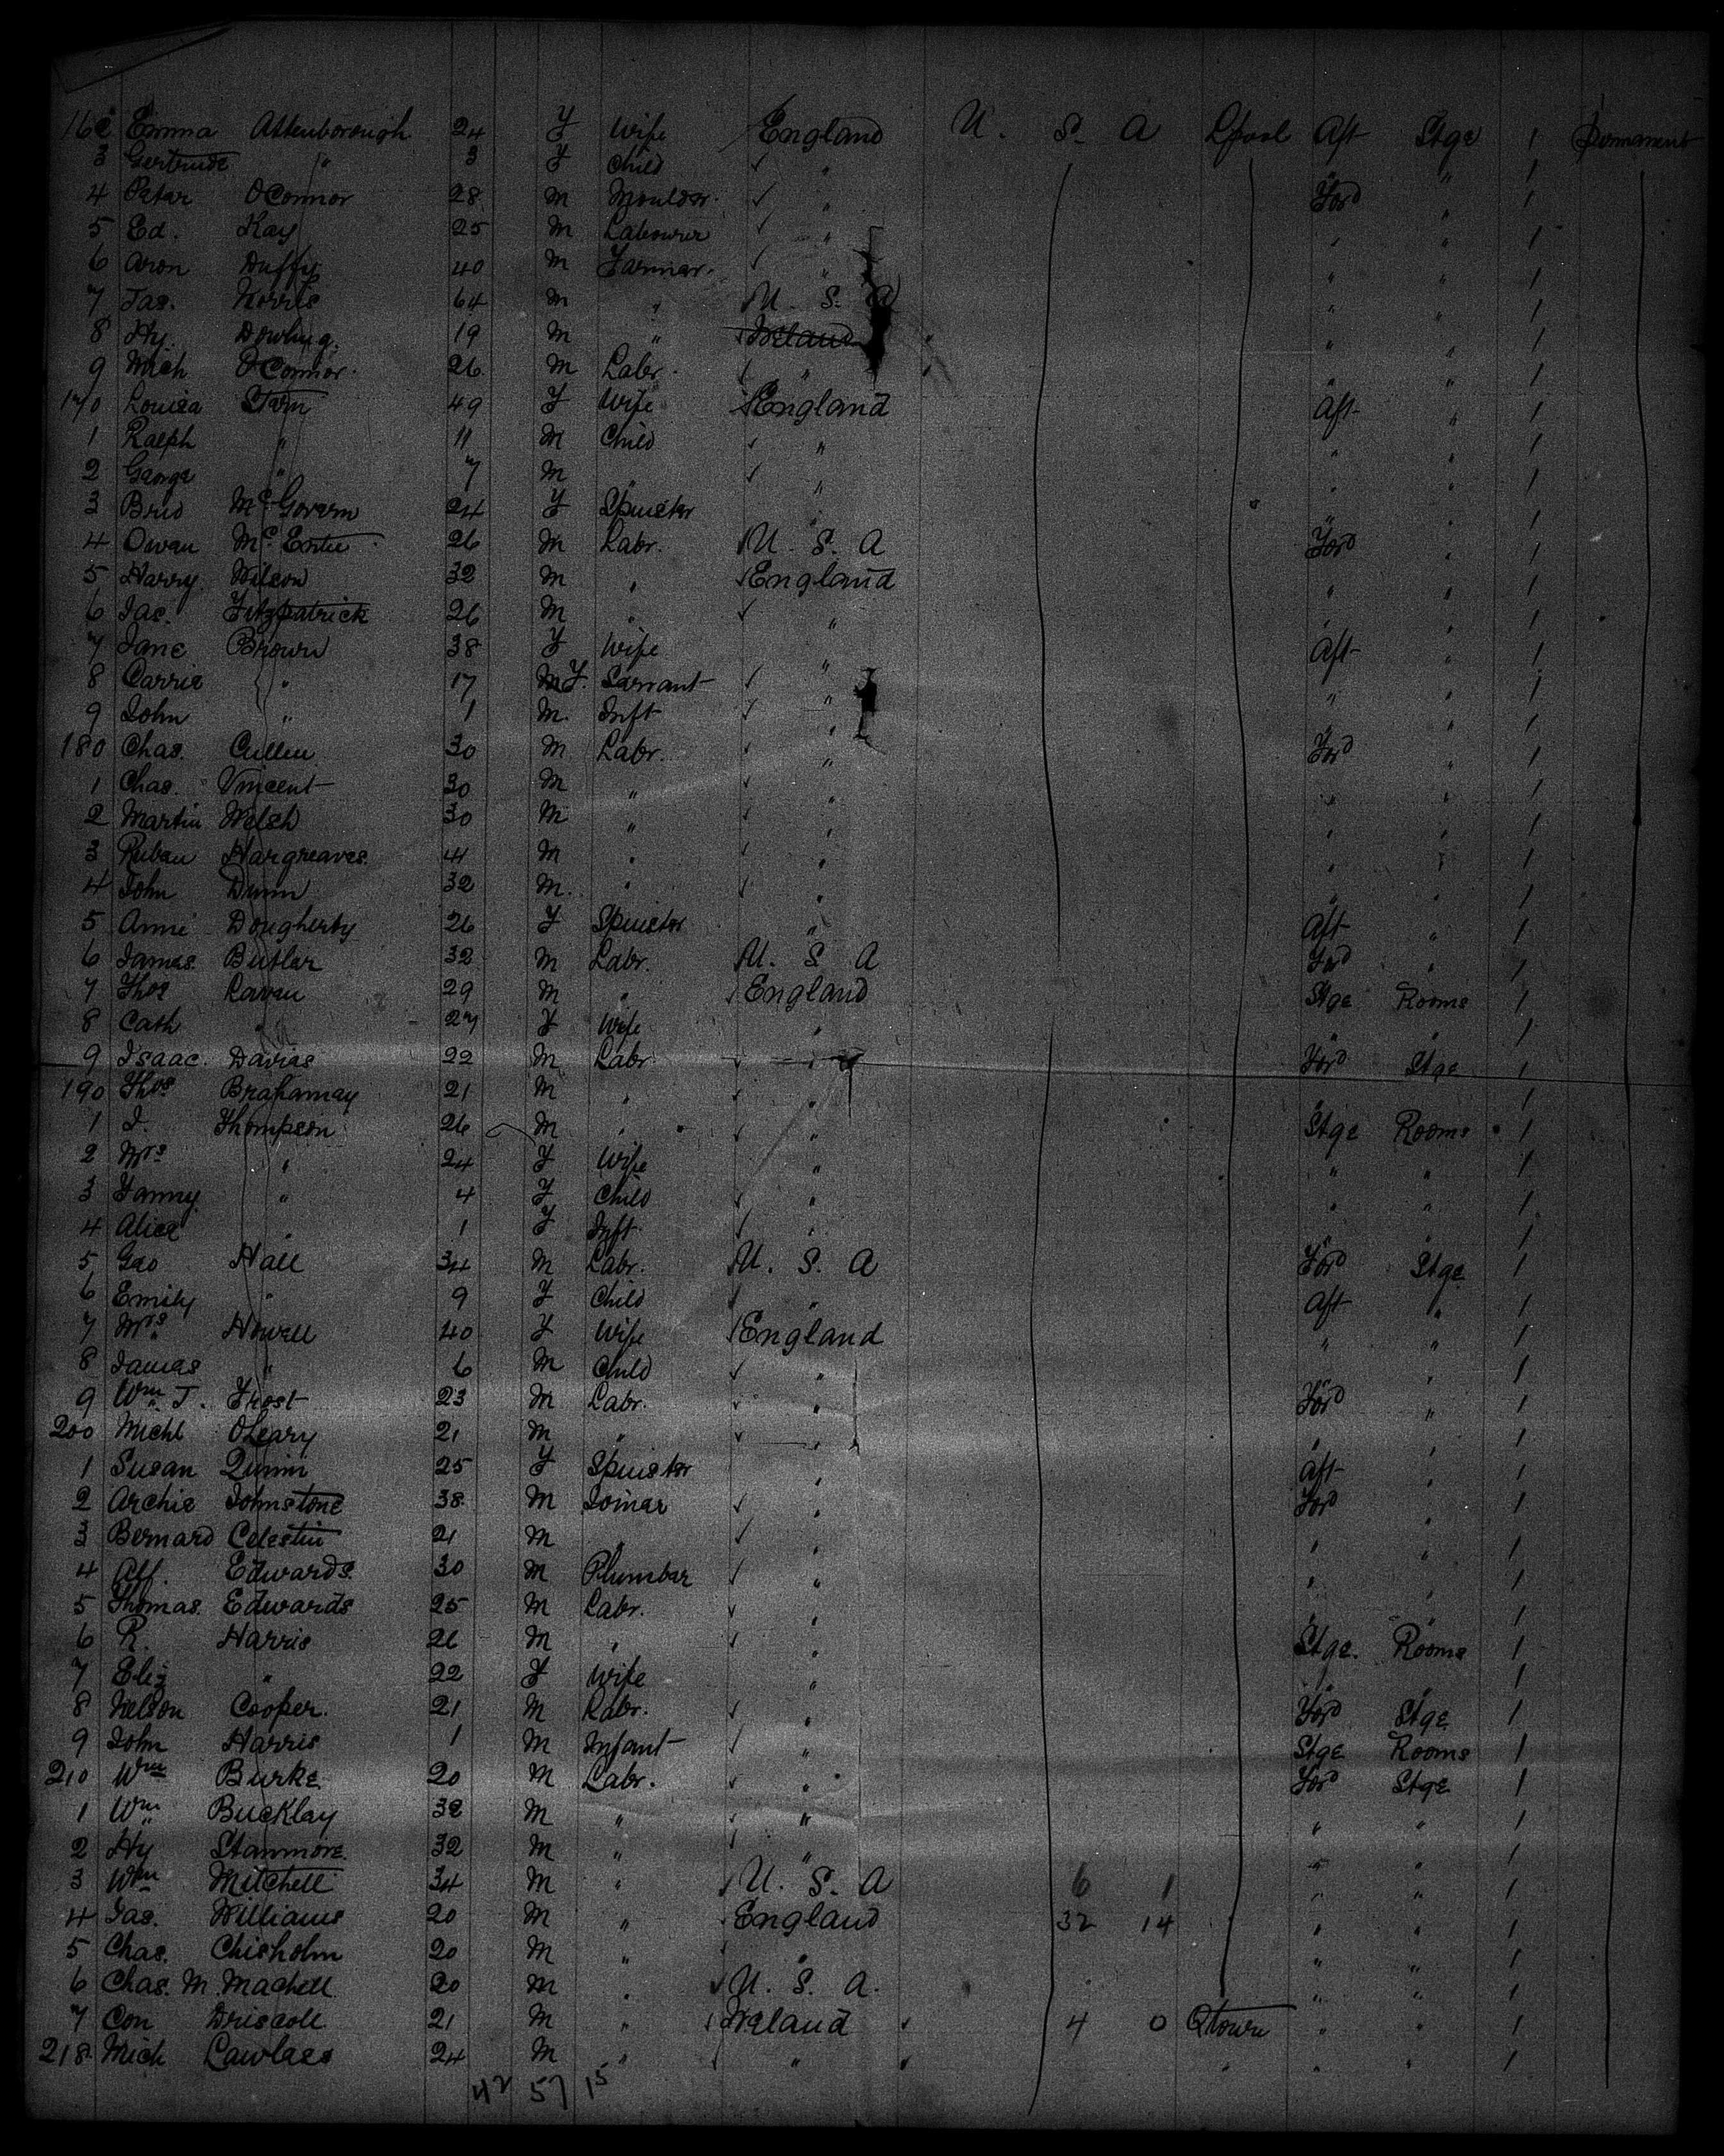 162 Emma Attenborough 24 F Wife England U. S. A Lpool Aft Stge 1 Permanent
3 Gertrude " 3 F Child " " " 1
4 Peter OConnor 28 M Moulder " Ford " 1
5 Ed. Kay 25 M Labourer " " " 1
6 Aron Duffy 40 M Farmer " " " 1
7 Jas. Norris 64 M " U. S. A " " 1
8 Hy. Dowling 19 M " Ireland " " 1
9 Mich OConnor 26 M Labr. " " " 1
170 Louisa 49 F Wife England Aft " 1
1 Ralph " 11 M Child " " " 1
2 George " 7 M " " " " 1
3 Brid McGovern 24 F Spinster " " " 1
4 Owen 26 M Labr. U. S. A Ford " 1
5 Harry Wilson 32 M " England " " 1
6 Jas. Fitzpatrick 26 M " " " " 1
7 Jane Brown 38 F Wife " Aft " 1
8 Carrie " 17 F. Servant " " " 1
9 John " 1 M. Inft " " " 1
180 Chas. Cullen 30 M Labr. " Ford " 1
1 Chas. Vincent 30 M " " " " 1
2 Martin Welsh 30 M " " " " 1
3 Ruben Hargreaves 41 M " " " " 1
4 John Dunn 32 M. " " " " 1
5 Annie Dougherty 26 F Spinster " Aft " 1
6 James Butler 32 M Labr. U. S A Ford " 1
7 Thos Raven 29 M " England Stge Rooms 1
8 Cath " 27 F Wife " " " 1
9 Isaac. Davies 22 M Labr. " Ford Stge 1
190 Thos 21 M " " " " 1
1 J. Thompson 26 M " " Stge Rooms 1
2 Mrs " 24 F Wife " " " 1
3 Fanny " 4 F Child " " " 1
4 Alice " 1 F Inft " " " 1
5 Geo Hall 34 M Labr. U. S. A Ford Stge 1
6 Emily " 9 F Child " Aft " 1
7 Mrs Howell 40 F Wife England " " 1
8 James " 6 M Child " " " 1
9 Wm. J. Frost 23 M Labr. " Ford " 1
200 Michl OLeary 21 M " " " " 1
1 Susan Quinn 25 F Spinster " Aft " 1
2 Archie Johnstone 38 M Joiner " Ford " 1
3 Bernard Celestin 21 M " " " " 1
4 Alf. Edwards 30 M Plumber " " " 1
5 Thomas Edwards 25 M Labr. " " " 1
6 R. Harris 26 M " " Stge. Rooms 1
7 Eliz " 22 F Wife " " " 1
8 Nelson Cooper. 21 M Labr. " Ford Stge 1
9 John Harris 1 M Infant " Stge Rooms 1
210 Wm Burke 20 M Labr. " Ford Stge 1
1 Wm Buckley 32 M " " " " 1
2 Hy Stanmore 32 M " " " " 1
3 Wm Mitchell 34 M " U. S. A 6 1 " " 1
4 Jas. Williams 20 M " England 32 14 " " 1
5 Chas. Chisholm 20 M " " " " 1
6 Chas. M. Machell 20 M " U. S. A. " " 1
7 Con Driscoll 21 M " Ireland 4 0 Qtown " " 1
218 Mich Lawless 24 M " " " " " 1
42 57 15